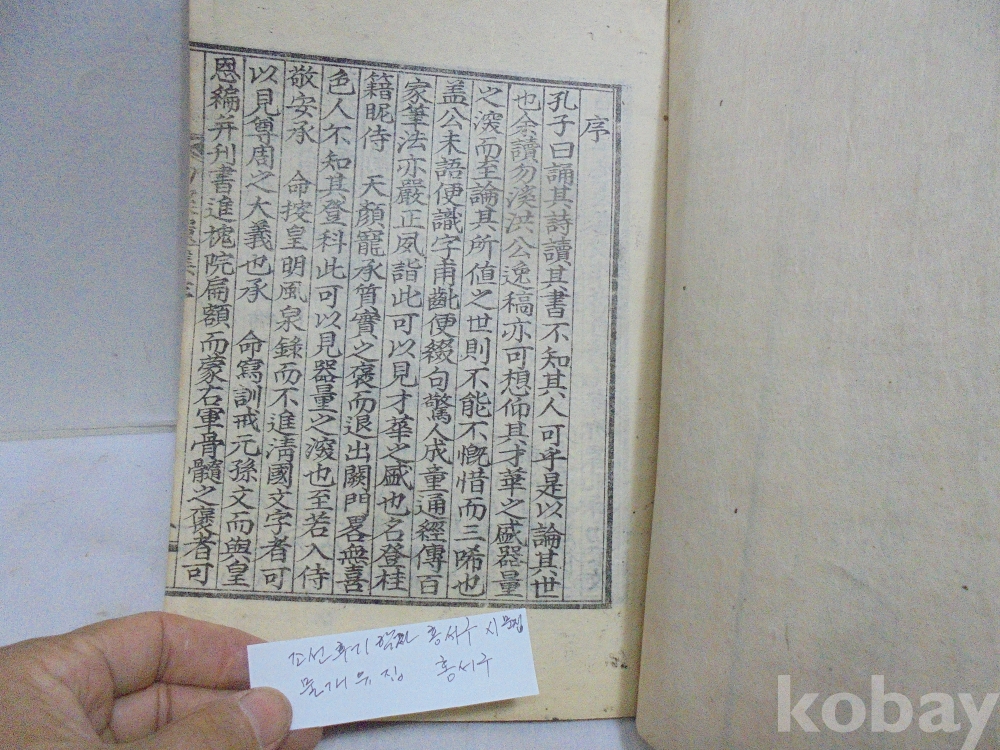 序
孔子曰誦其詩讀其書不知其人可乎是以論其世
也余讀勿溪洪公逸稿亦可想仰其才華之盛器量
之深而至論其所値之世則不能不慨惜而三唏也
盖公未語便識字甫齔便綴句驚人成童通經傳百
家筆法亦嚴正夙詣此可以見才華之盛也名登桂
籍昵侍 天顔寵承質實之褒而退出闕門畧無喜
色人不知其登科此可以見器量之深也至若入侍
敬安承 命按皇明風泉錄而不進淸國文字者可
以見尊周之大義也承 命寫訓戒元孫文而與皇
恩編并刋書進槐院扁額而蒙右軍骨髓之褒者可
조선후기 학자 홍서구 시문집
물개유집 홍서구
kobay